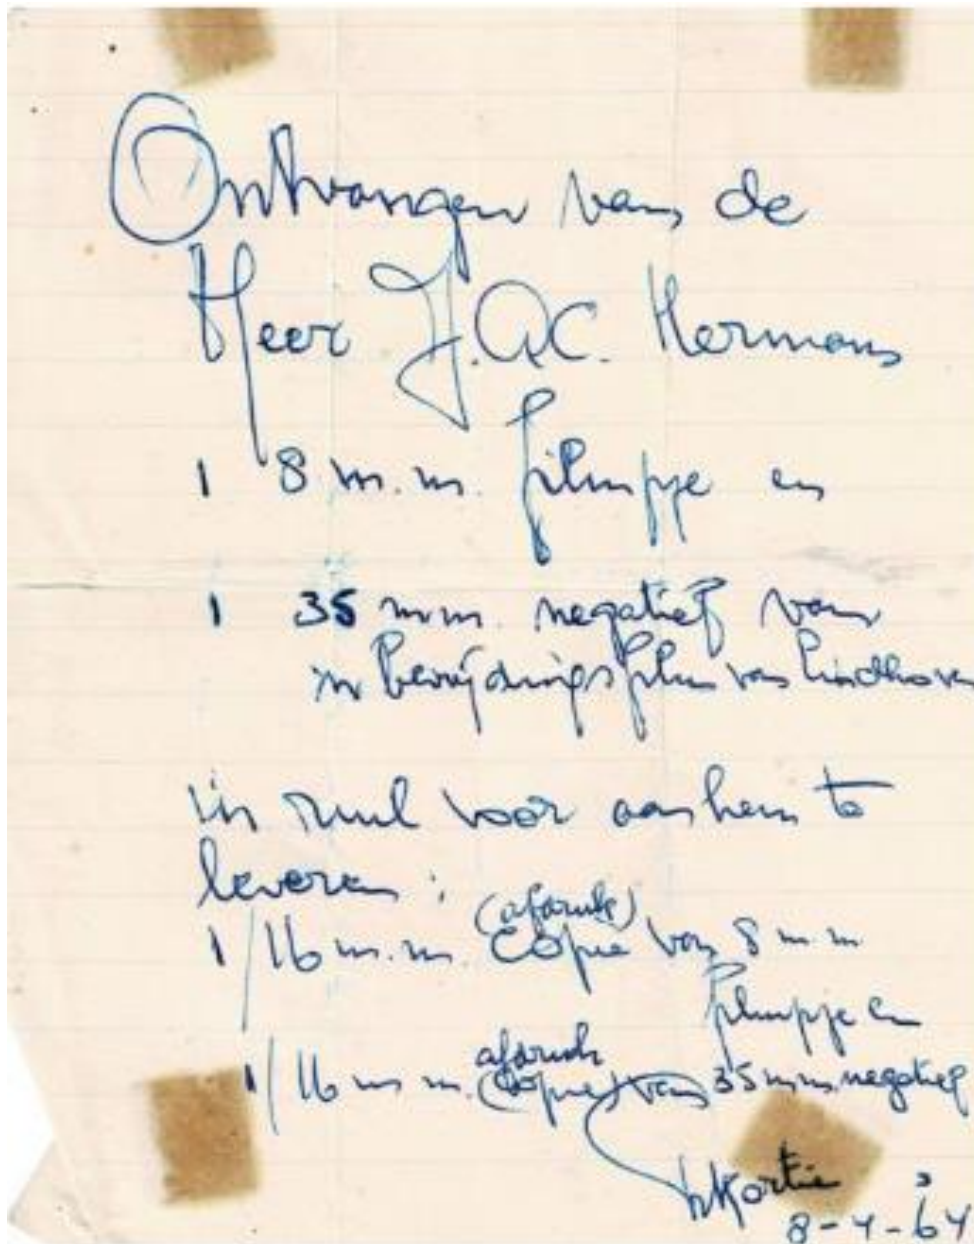 Ontvangen van de
Heer J.A.C. Hermans
1 8 m.m. filmpje en
1 35 m.m. negatief van
bevrijdingsfilm van Eindhoven
in ruil voor aan hem te
leveren :
(afdruk)
1/16 m.m. copie van 8 m.m.
filmpje en
afdruk
1/16 m.m. (copie) van 35 m.m. negatief
8-4-64